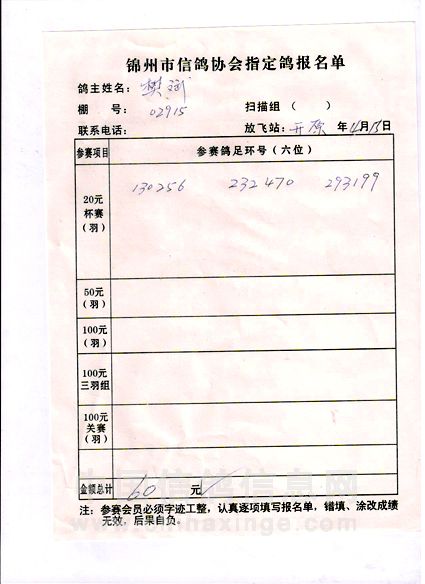 锦州市信鸽协会指定鸽报名单
鸽主姓名：樊斌
棚 号：02915 扫描组（ ）
联系电话： 放飞站：开原 年4月13日
参赛项目 参赛鸽足环号（六位）
20元 杯赛 （羽） 130256 232470 293199
50元 （羽）
100元 （羽）
100元 三羽组
100元 关赛 （羽）
金额总计 60 元
注：参赛会员必须字迹工整，认真逐项填写报名单，错填、涂改成绩
无效，后果自负。
中国信鸽信息网